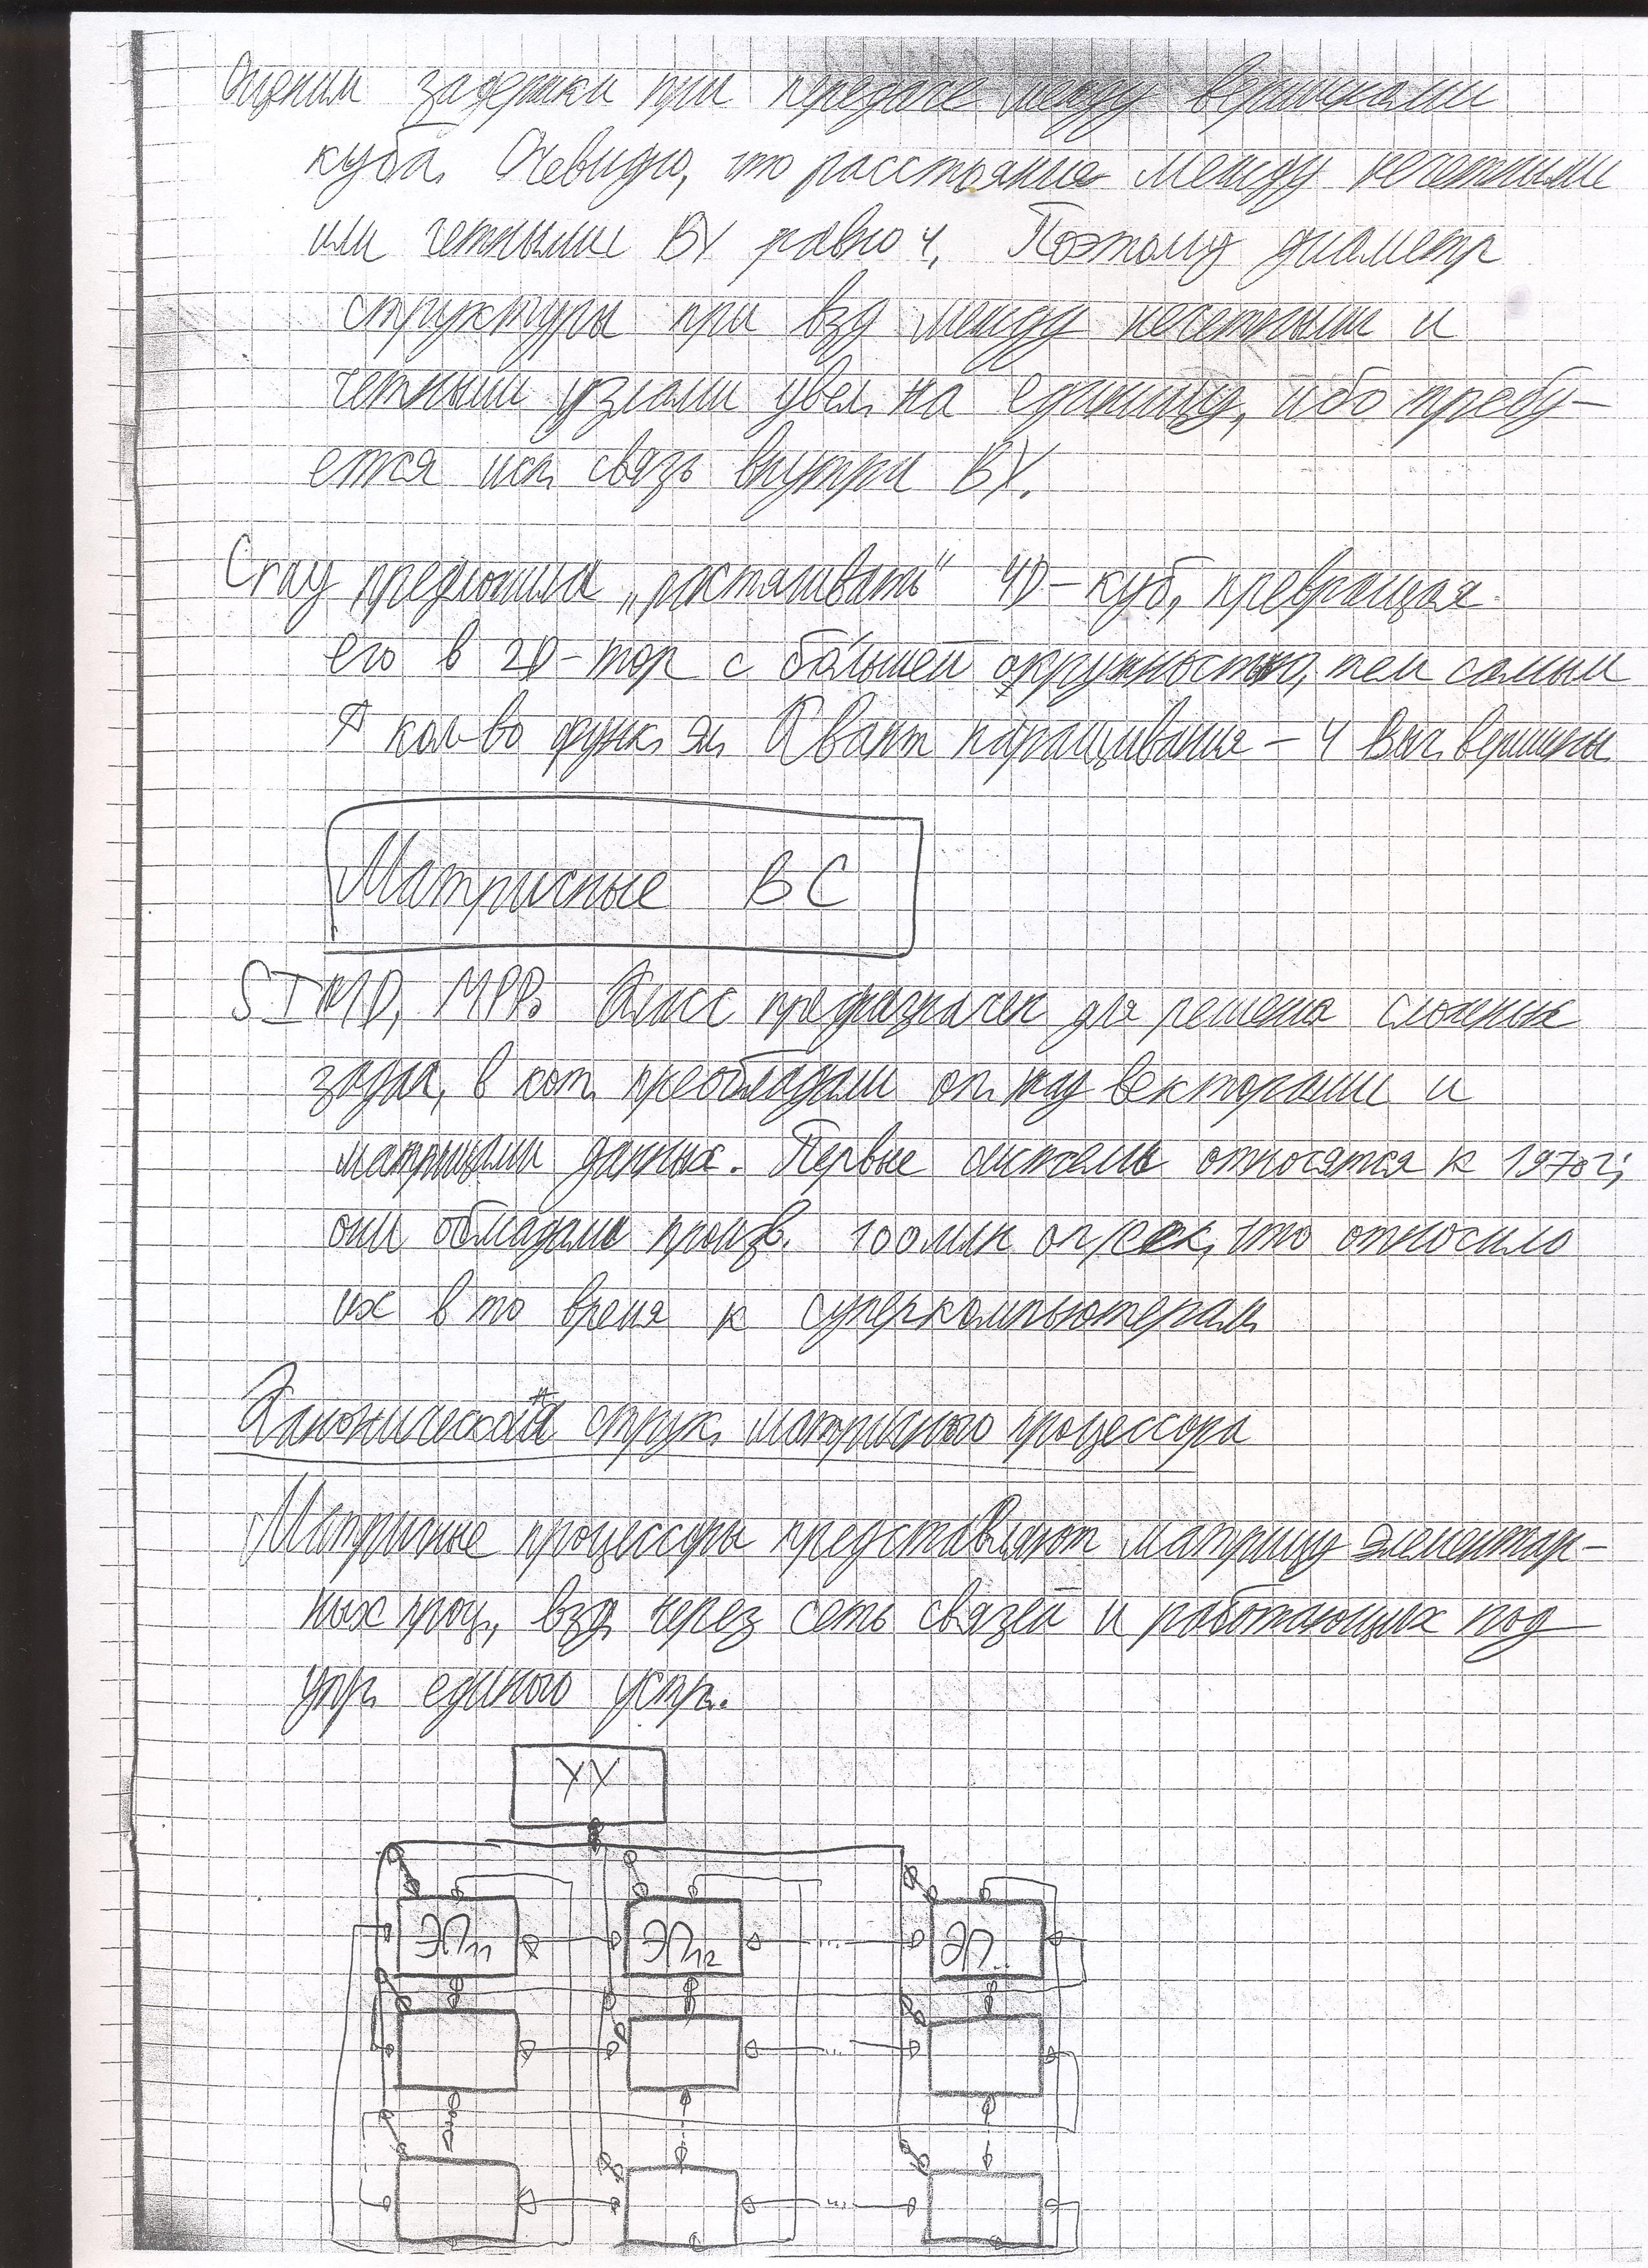 Оценим задержки при передаче между вершинами
куба. Очевидно, что расстояние между нечетными
или четными ВУ равно 4. Поэтому диаметр
структуры при взд между нечетным и
четным узлами увел. на единицу, ибо требу-
ется исп. связь внутри ВУ.
Cray предложила „растягивать" 4D-куб, превращая
его в 2D-тор с бо́льшей окружностью, тем самым
↑ кол-во функ. эл. Квант наращивания - 4 выч. вершины
Матричные ВС
SIMD, MPP. Класс предназначен для решения сложных
задач, в кот. преобладали оп. над векторами и
матрицами данных. Первые системы относятся к 1970г;
они обладали произв. 100 млн оп/сек, что относило
их в то время к суперкомпьютерам
Каноническая струк. матричного процессора
Матричные процессоры представляют матрицу элементар-
ных проц., взд. через сеть связей и работающих под
упр. единого устр.
УУ
ЭП11 ЭП12 ... ЭП..
...
...